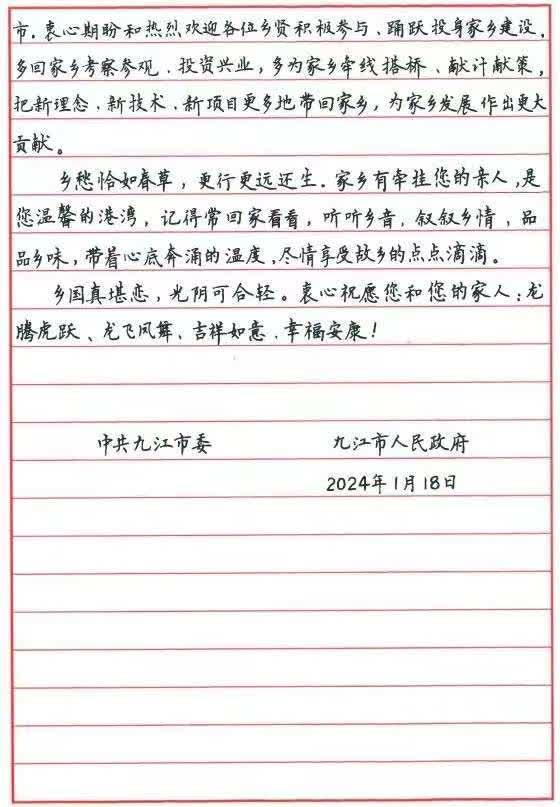 市。衷心期盼和热烈欢迎各位乡贤积极参与、踊跃投身家乡建设，
多回家乡考察参观、投资兴业，多为家乡牵线搭桥、献计献策，
把新理念、新技术、新项目更多地带回家乡，为家乡发展作出更大
贡献。
乡愁恰如春草，更行更远还生。家乡有牵挂您的亲人，是
您温馨的港湾，记得常回家看看，听听乡音，叙叙乡情，品
品乡味，带着心底奔涌的温度，尽情享受故乡的点点滴滴。
乡国真堪恋，光阴可合轻。衷心祝愿您和您的家人：龙
腾虎跃、龙飞凤舞、吉祥如意、幸福安康！
中共九江市委 九江市人民政府
2024年1月18日